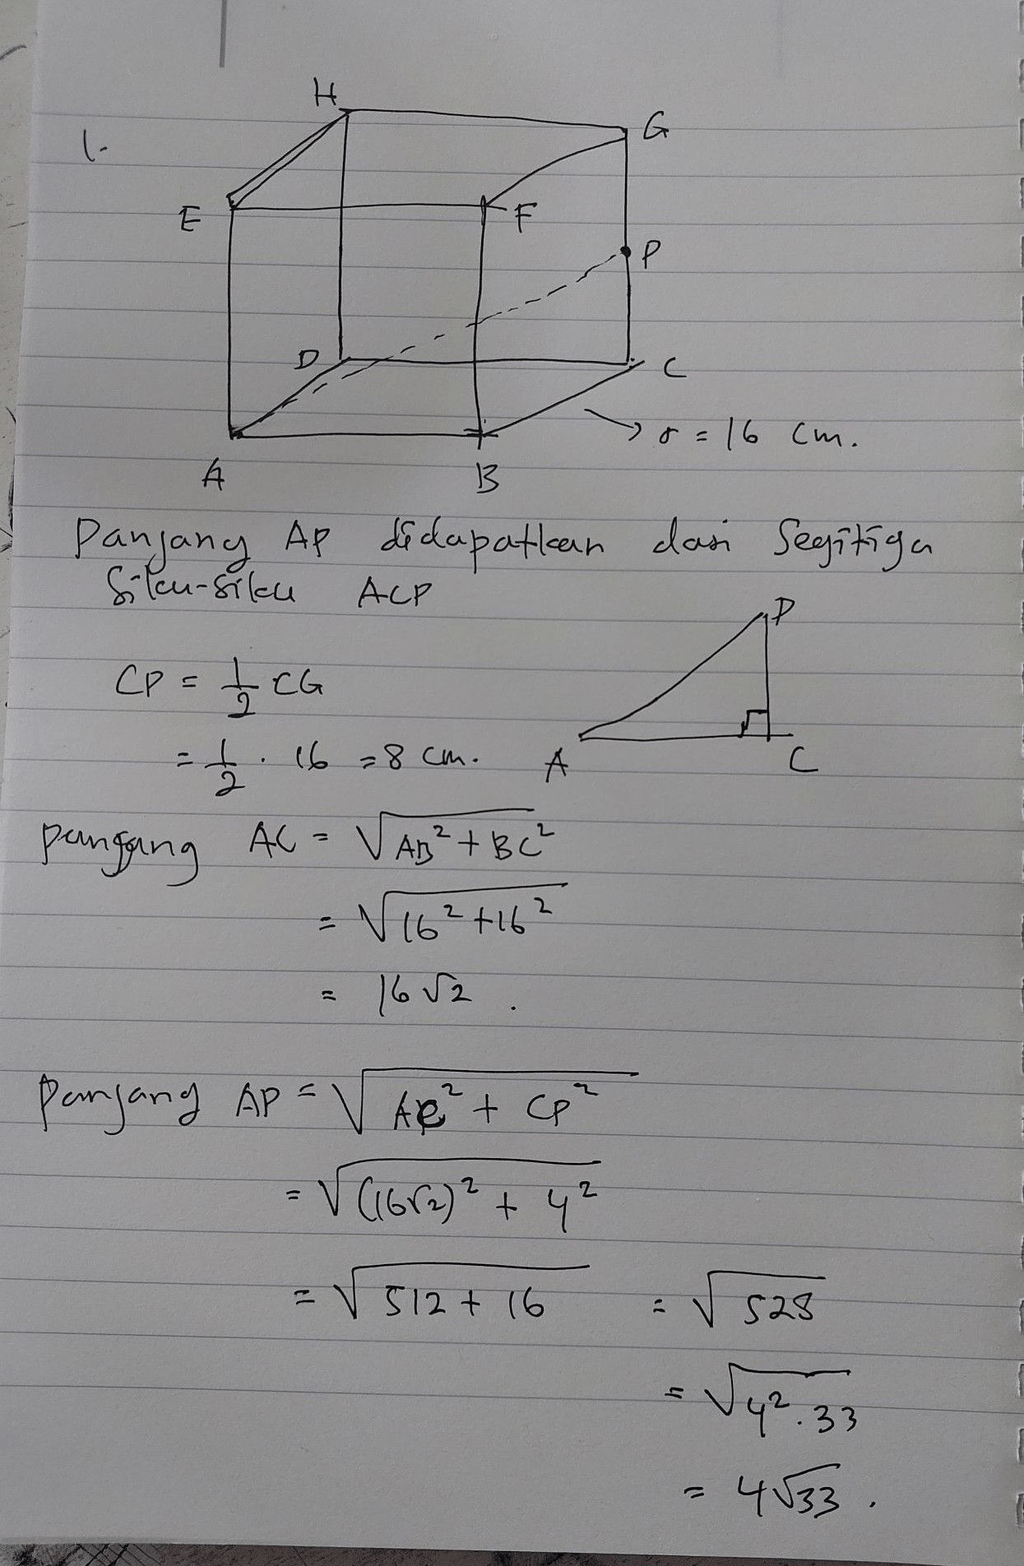 1.
H
G
E
F
P
D
C
→ r = 16 cm.
A
B
Panjang AP didapatkan dari Segitiga
Siku-siku ACP
P
CP = 1/2 CG
= 1/2 . 16 = 8 cm.
A
C
panjang AC = √(AB² + BC²)
= √(16² + 16²)
= 16√2 .
Panjang AP = √(AC² + CP²)
= √((16√2)² + 4²)
= √(512 + 16) = √528
= √(4².33)
= 4√33 .